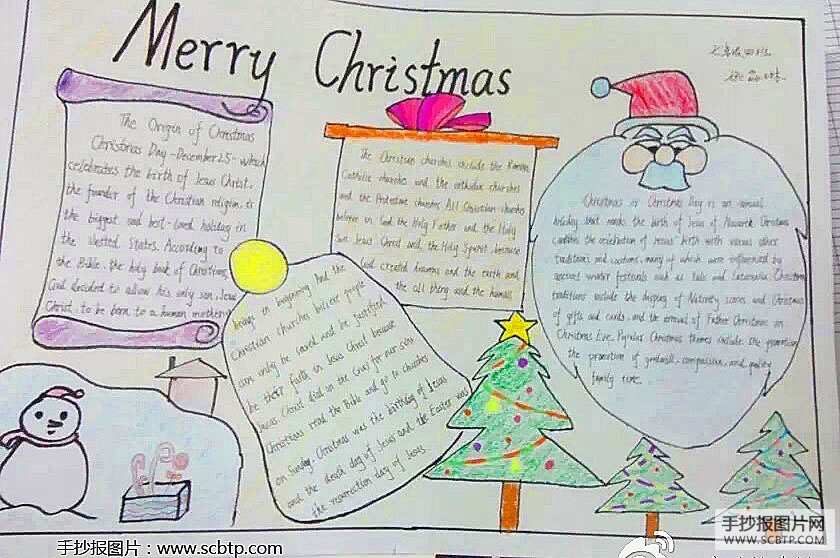 Merry Christmas
七年级四班
The Origin of Christmas
Christmas Day-December 25- which
celebrates the birth of Jesus Christ,
the founder of the Christian religion, is
the biggest and best-loved holiday in
the United States. According to
the Bible, the holy book of Christians,
God decided to allow his only son, Jesus
Christ, to be born to a human mother
The Christian churches include the Roman
Catholic churches and the orthodox churches
and the Protestant churches. All Christian churches
believe in God the Holy Father and the Holy
Son Jesus Christ and the Holy Spirit, because
God created heavens and the earth and
the all thing and the human
being in beginning And the
Christian churches believe people
can only be saved and be justified
be their faith in Jesus Christ because
Jesus Christ died on the Cross for our sins
Christians read the Bible and go to churches
on Sunday. Christmas was the birthday of Jesus
and the death day of Jesus and the Easter was
the resurrection day of Jesus.
Christmas or Christmas Day is an annual
holiday that marks the birth of Jesus of Nazareth Christmas
combines the celebration of Jesus' birth with various other
traditions and customs, many of which were influenced by
ancient winter festivals such as Yule and Saturnalia. Christmas
traditions include the display of Nativity scenes and Christmas
of gifts and cards, and the arrival of Father Christmas on
Christmas Eve. Popular Christmas themes include the promotion
the promotion of goodwill, compassion, and quality
family time.
手抄报图片：www.scbtp.com
手抄报图片网
WWW.SCBTP.COM